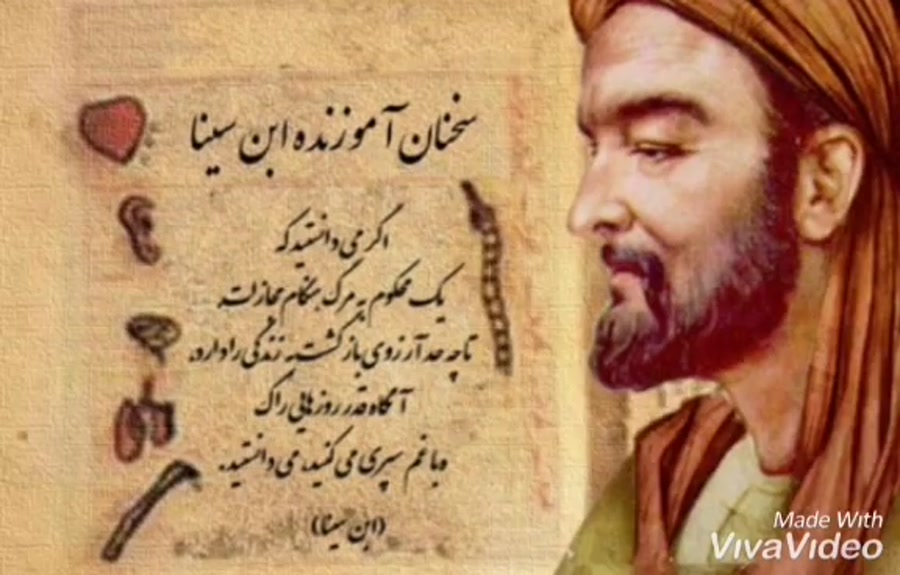 سخنان آموزنده ابن سینا
اگر می دانستید که
یک محکوم به مرگ هنگام مجازات
تا چه حد آرزوی بازگشت به زندگی را دارد
آنگاه قدر روزهایی را که
با غم سپری می کنید، می دانستید.
(ابن سینا)
Made With
VivaVideo